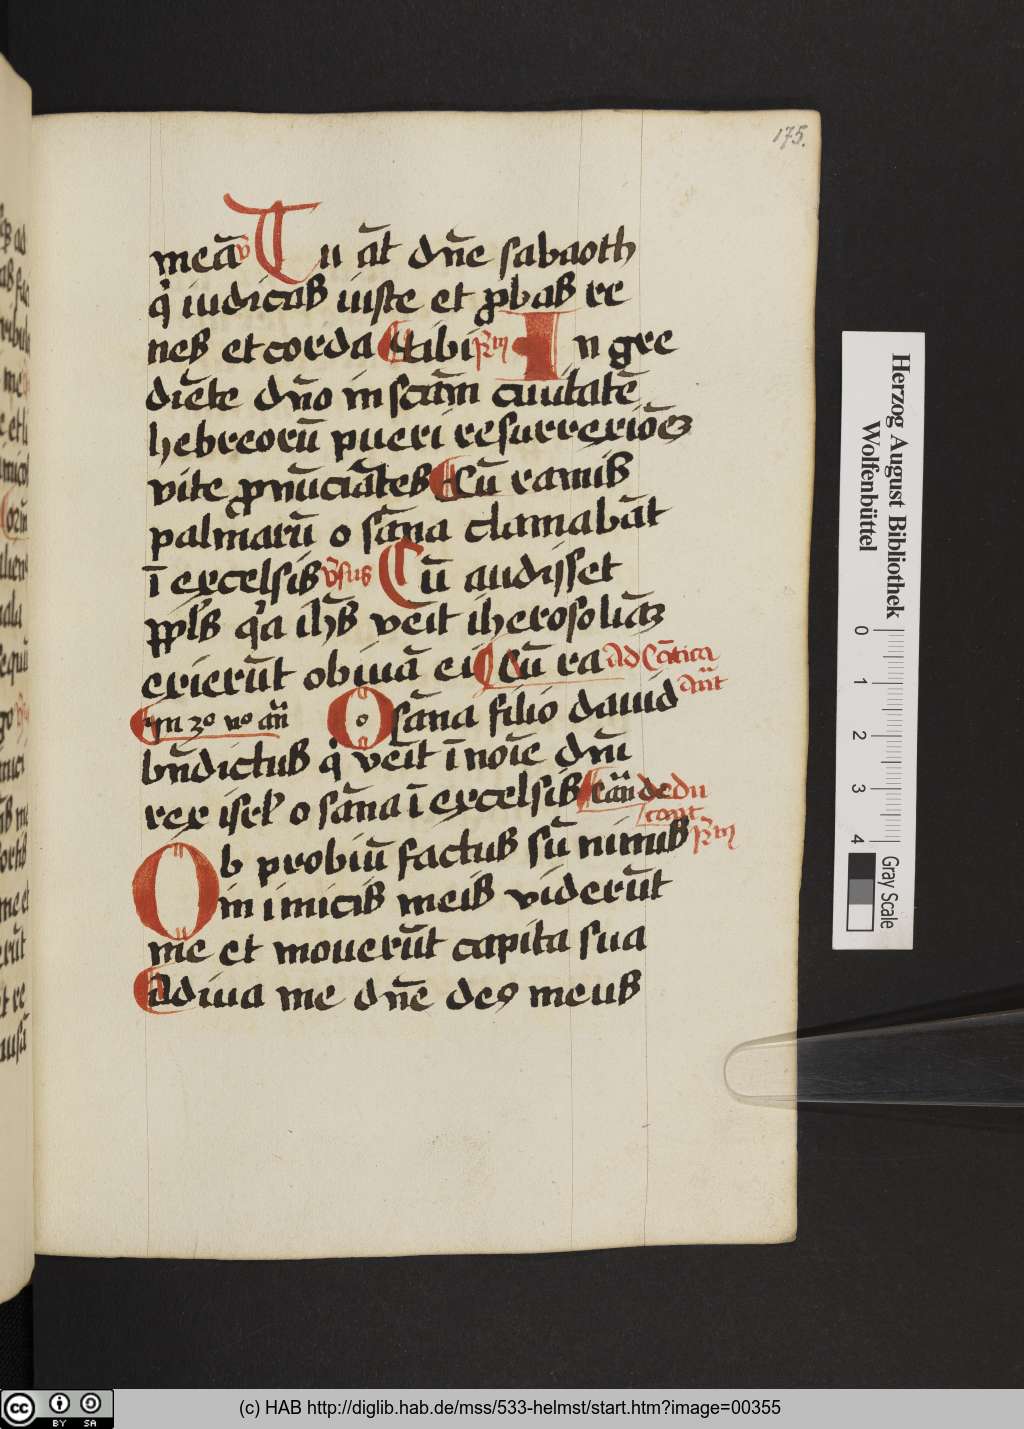 175.
meā v̄ Tu āt dn̄e sabaoth
q̇ iudicas iuste et ꝓbas re
nes et corda tibi Rm̄ In gre
diēte dn̄o in scām ciuitatē
hebreorū pueri resurrexiōeȝ
vite ꝓnūciātes Cū ramis
palmarū o sāna clamabāt
ī excelsis v̄sus Cū audisset
ppl̄s q̇a ih̄s veīt iherosolīaȝ
exierūt obiuiā ei Cū ra Ad Cātica
In 2o no an̄ Osāna filio dauid Ant
bn̄dictus q̇ veīt ī noīe dn̄i
rex isrl̄ o sāna ī excelsis an̄ de dn̄
cont
Ob probiū factus sū nimis Rm̄
inimicis meis viderūt
me et mouerūt capita sua
Adiua me dn̄e deꝯ meus
Herzog August Bibliothek
Wolfenbüttel
0 1 2 3 4
Gray Scale
cc BY SA
(c) HAB http://diglib.hab.de/mss/533-helmst/start.htm?image=00355